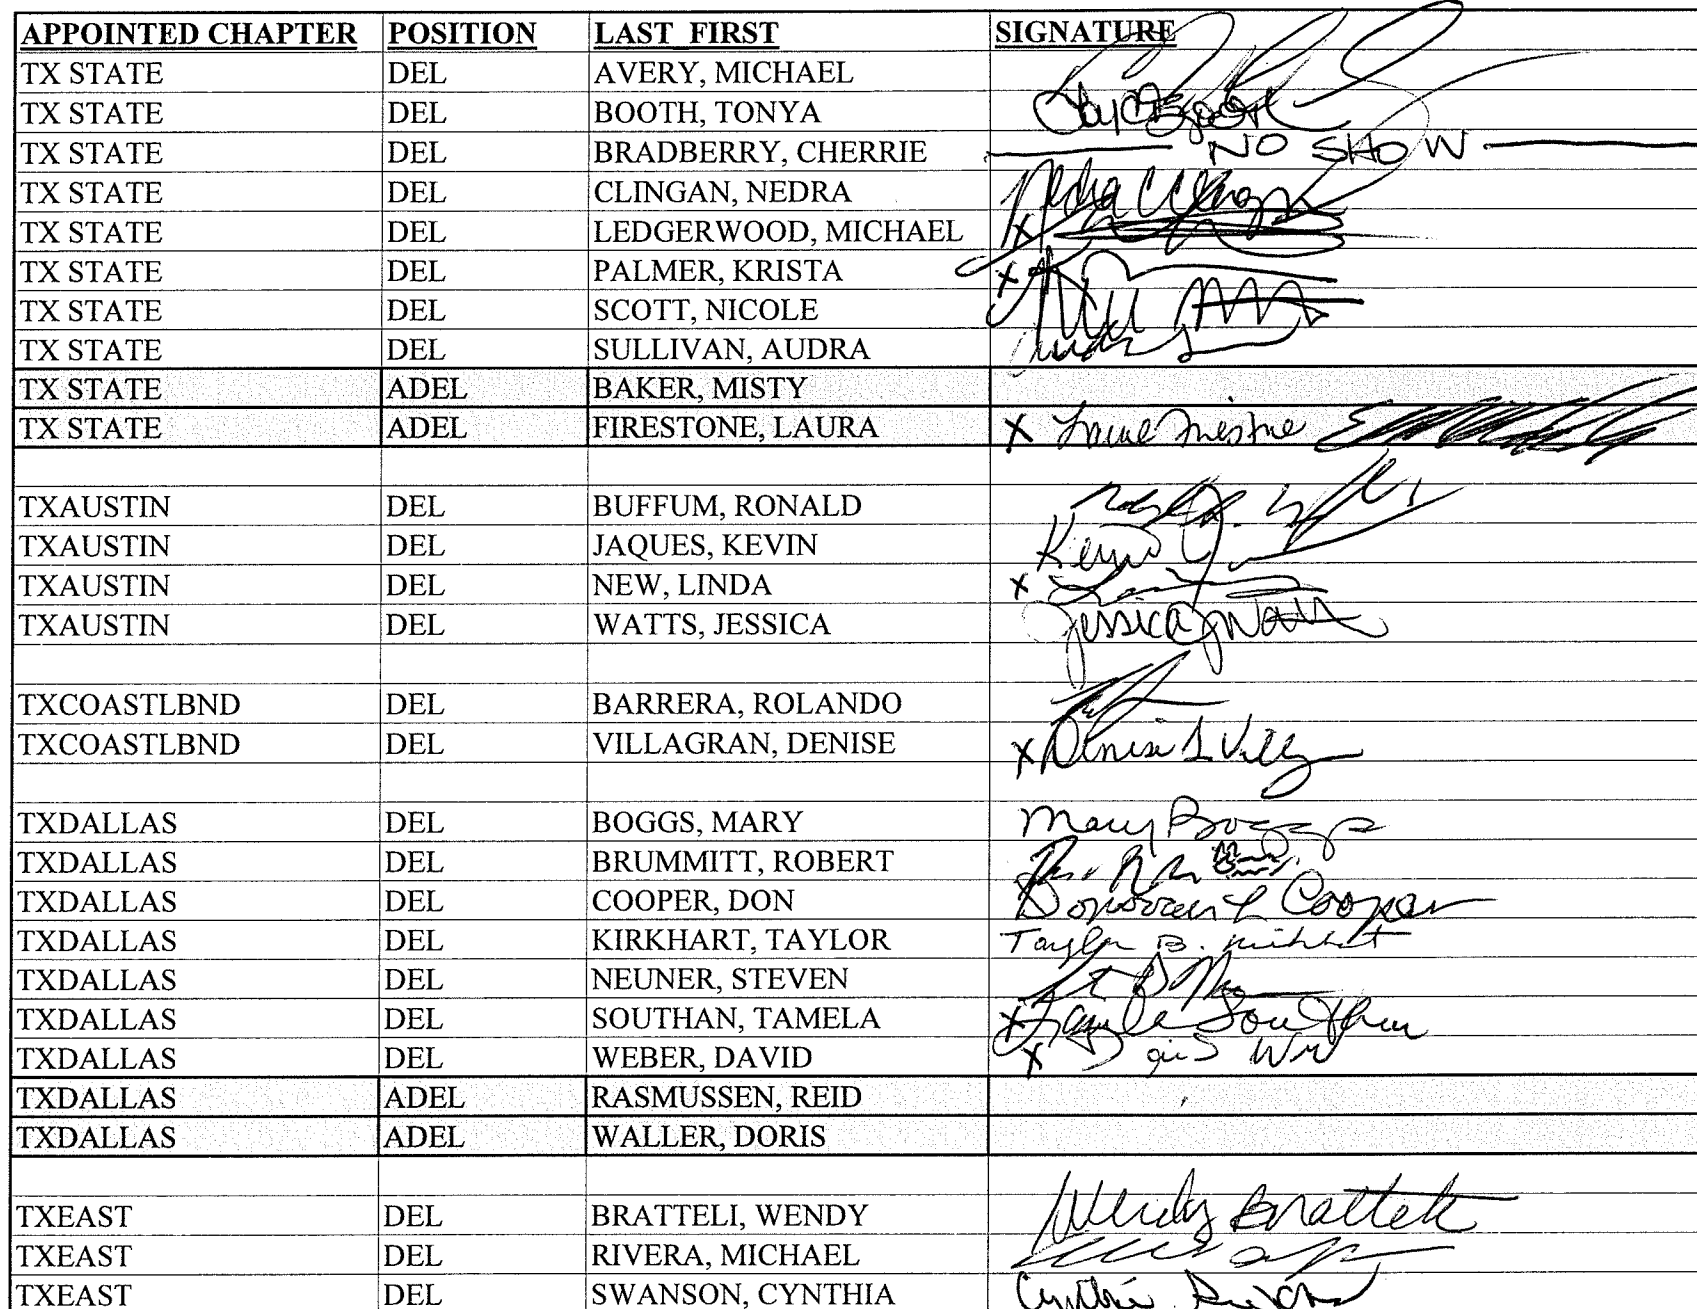 APPOINTED CHAPTER POSITION LAST FIRST SIGNATURE
TX STATE DEL AVERY, MICHAEL
TX STATE DEL BOOTH, TONYA
TX STATE DEL BRADBERRY, CHERRIE NO SHOW
TX STATE DEL CLINGAN, NEDRA Nedra Clingan
TX STATE DEL LEDGERWOOD, MICHAEL X
TX STATE DEL PALMER, KRISTA X
TX STATE DEL SCOTT, NICOLE
TX STATE DEL SULLIVAN, AUDRA
TX STATE ADEL BAKER, MISTY
TX STATE ADEL FIRESTONE, LAURA X
TXAUSTIN DEL BUFFUM, RONALD
TXAUSTIN DEL JAQUES, KEVIN Kevin
TXAUSTIN DEL NEW, LINDA X
TXAUSTIN DEL WATTS, JESSICA Jessica Watts
TXCOASTLBND DEL BARRERA, ROLANDO
TXCOASTLBND DEL VILLAGRAN, DENISE X Denise
TXDALLAS DEL BOGGS, MARY Mary Boggs
TXDALLAS DEL BRUMMITT, ROBERT
TXDALLAS DEL COOPER, DON Donovan L Cooper
TXDALLAS DEL KIRKHART, TAYLOR Taylor B. Kirkhart
TXDALLAS DEL NEUNER, STEVEN
TXDALLAS DEL SOUTHAN, TAMELA X Tamela Southan
TXDALLAS DEL WEBER, DAVID X David
TXDALLAS ADEL RASMUSSEN, REID
TXDALLAS ADEL WALLER, DORIS
TXEAST DEL BRATTELI, WENDY Wendy Bratteli
TXEAST DEL RIVERA, MICHAEL
TXEAST DEL SWANSON, CYNTHIA Cynthia Swanson